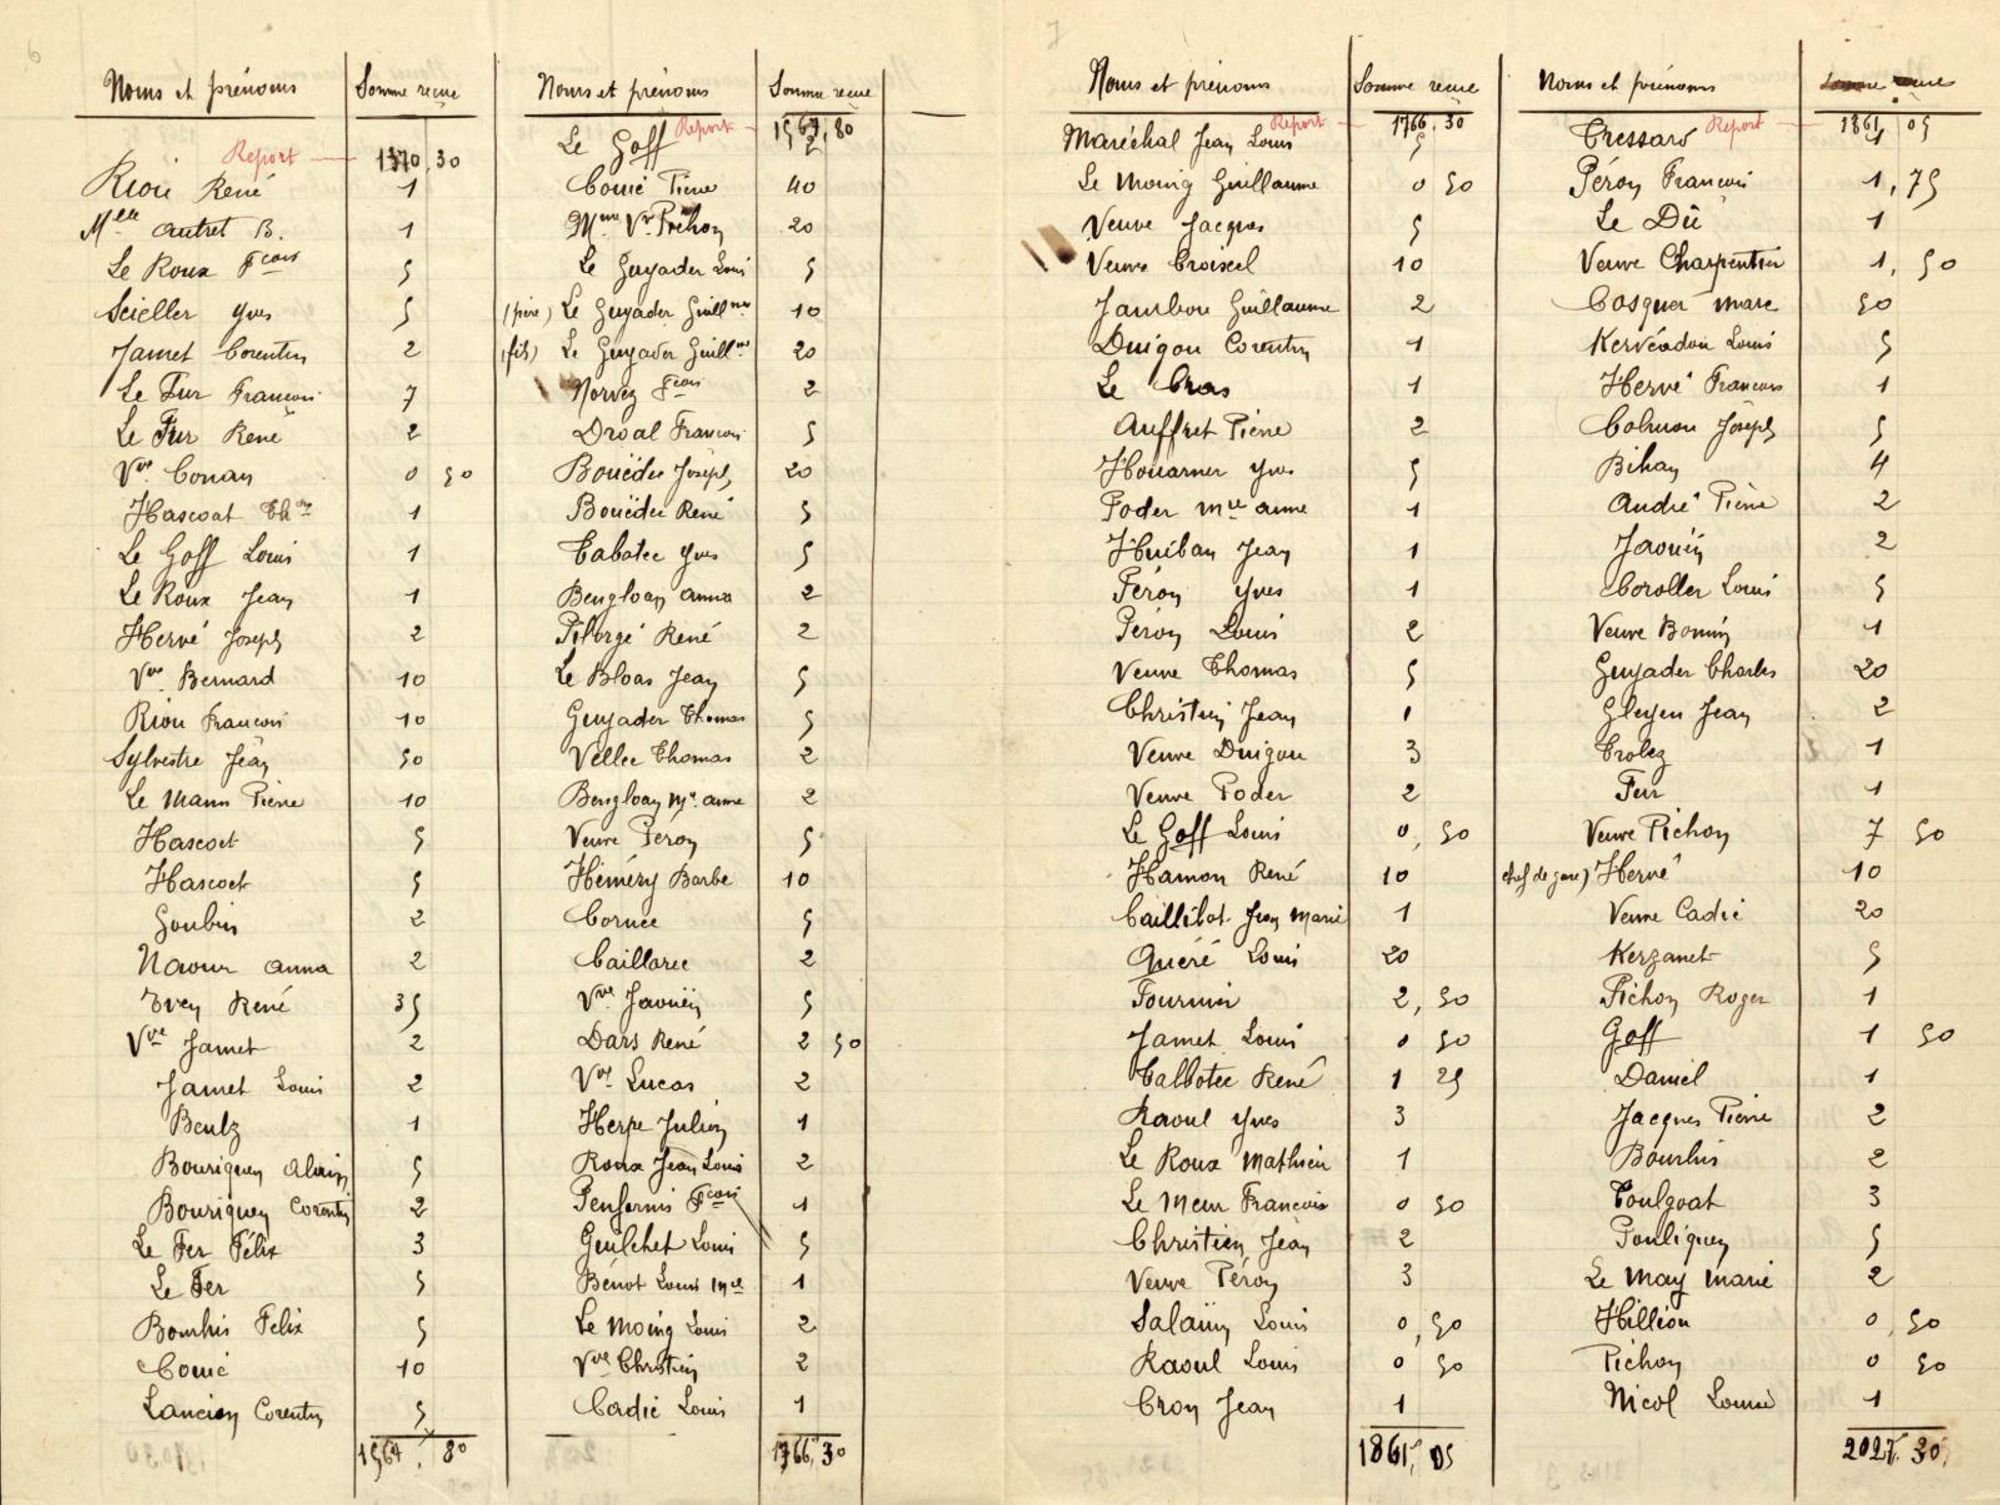 6
Noms et prénoms Somme reçue
Report 1370,30
Riou René 1
Melle Autret B. 1
Le Roux Fçois 5
Seieller Yves 5
Jamet Corentin 2
Le Fur François 7
Le Fur René 2
Vve Conan 0 50
Hascoat Thre 1
Le Goff Louis 1
Le Roux Jean 1
Hervé Joseph 2
Vve Bernard 10
Riou François 10
Sylvestre Jean 50
Le Mann Pierre 10
Hascoet 5
Hascoet 5
Goubin 2
Naour Anna 2
Even René 35
Vve Jamet 2
Jamet Louis 2
Beulz 1
Bouriquen Alain 5
Bouriquen Corentin 2
Le Fer Félix 3
Le Fer 5
Bourhis Felix 5
Couic 10
Lancien Corentin 5
1567,80
Noms et prénoms Somme reçue
Report 1567,80
Le Goff 2
Couic Pierre 40
Mme Vve Préhon 20
Le Guyader Louis 5
(père) Le Guyader Guillme 10
(fils) Le Guyader Guillme 20
Norvez Fçois 2
Droal François 5
Bouëdec Joseph 20
Bouëdec René 5
Cabatec Yves 5
Bengloan Anna 2
Pilorgé René 2
Le Bloas Jean 5
Guyader Thomas 5
Vellec Thomas 2
Bengloan Me Anne 2
Veuve Péron 5
Héméry Barbe 10
Cornec 5
Caillarec 2
Vve Jaouën 5
Dars René 2 50
Vve Lucas 2
Herpe Julien 1
Roux Jean Louis 2
Penfornis Fçois 1
Guilchet Louis 5
Bénot Louis Mel 1
Le Moing Louis 2
Vve Christien 2
Cadic Louis 1
1766,30
7
Noms et prénoms Somme reçue
Report 1766,30
Maréchal Jean Louis 5
Le Moing Guillaume 0 50
Veuve Jacques 5
Veuve Croissel 10
Jambou Guillaume 2
Duigou Corentin 1
Le Bras 1
Auffret Pierre 2
Houarner Yves 5
Poder Mie Anne 1
Huiban Jean 1
Péron Yves 1
Péron Louis 2
Veuve Thomas 5
Christien Jean 1
Veuve Duigou 3
Veuve Poder 2
Le Goff Louis 0,50
Hamon René 10
Caillibot Jean Marie 1
Quéré Louis 20
Fournier 2,50
Jamet Louis 0 50
Calbotec René 1 25
Raoul Yves 3
Le Roux Mathieu 1
Le Meur François 0 50
Christien Jean 2
Veuve Péron 3
Salaün Louis 0,50
Raoul Louis 0 50
Cron Jean 1
1861,05
Noms et prénoms Somme reçue
Report 1861,05
Tressard 4
Péron François 1,75
Le Dû 1
Veuve Charpentier 1,50
Cosquer Marc 50
Kervéadou Louis 5
Hervé François 1
Colmou Joseph 5
Bihan 4
André Pierre 2
Jaouën 2
Coroller Louis 5
Veuve Bonnin 1
Guyader Charles 20
Gleyen Jean 2
Trolez 1
Fur 1
Veuve Pichon 7 50
chef de gare) Hervé 10
Veuve Cadic 20
Kerzanet 5
Pichon Roger 1
Goff 1 50
Daniel 1
Jacques Pierre 2
Bourhis 2
Toulgoat 3
Pouliquen 5
Le May Marie 2
Hillion 0,50
Pichon 0 50
Nicol Louise 1
2027,30